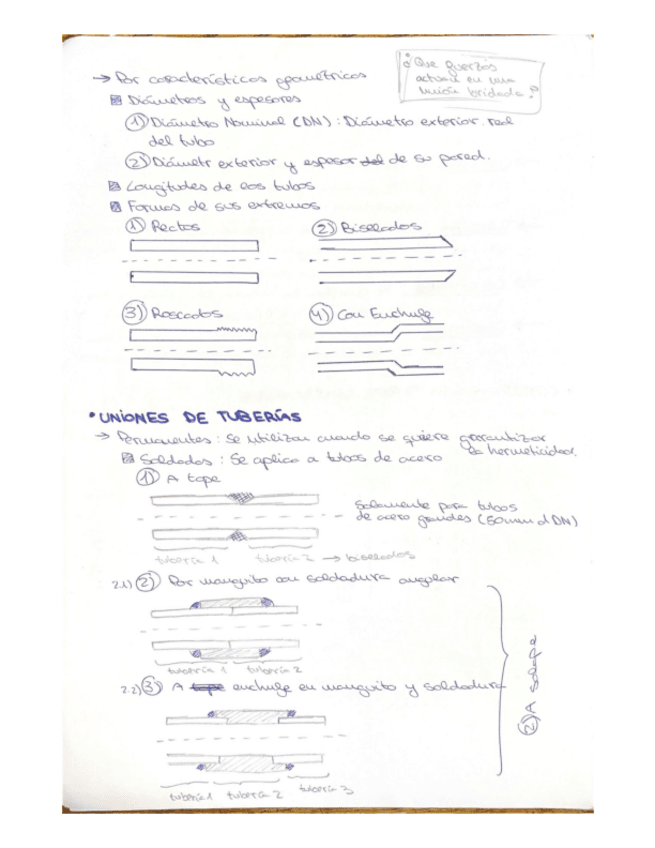 ¿Que fuerzas
actuan en una
unión bridada?
→ Por características geométricas
Diámetros y espesores
1) Diámetro Nominal (DN): Diámetro exterior real
del tubo
2) Diámetr exterior y espesor del de su pared.
Longitudes de los tubos
Formas de sus extremos
1) Rectos
2) Biselados
3) Roscados
4) Con Enchufe
• UNIONES DE TUBERÍAS
→ Permanentes: Se utilizan cuando se quiere garantizar
la hermeticidad.
Soldados: Se aplica a tubos de acero
1) A tope
Solamente para tubos
de acero grandes (50mm d DN)
tubería 1 tubería 2 → biselados
2.1) 2) Por manguito con soldadura angular
tubería 1 tubería 2
2.2) 3) A tope enchufe en manguito y soldadura
tubería 1 tubería 2 tubería 3
2) A solape